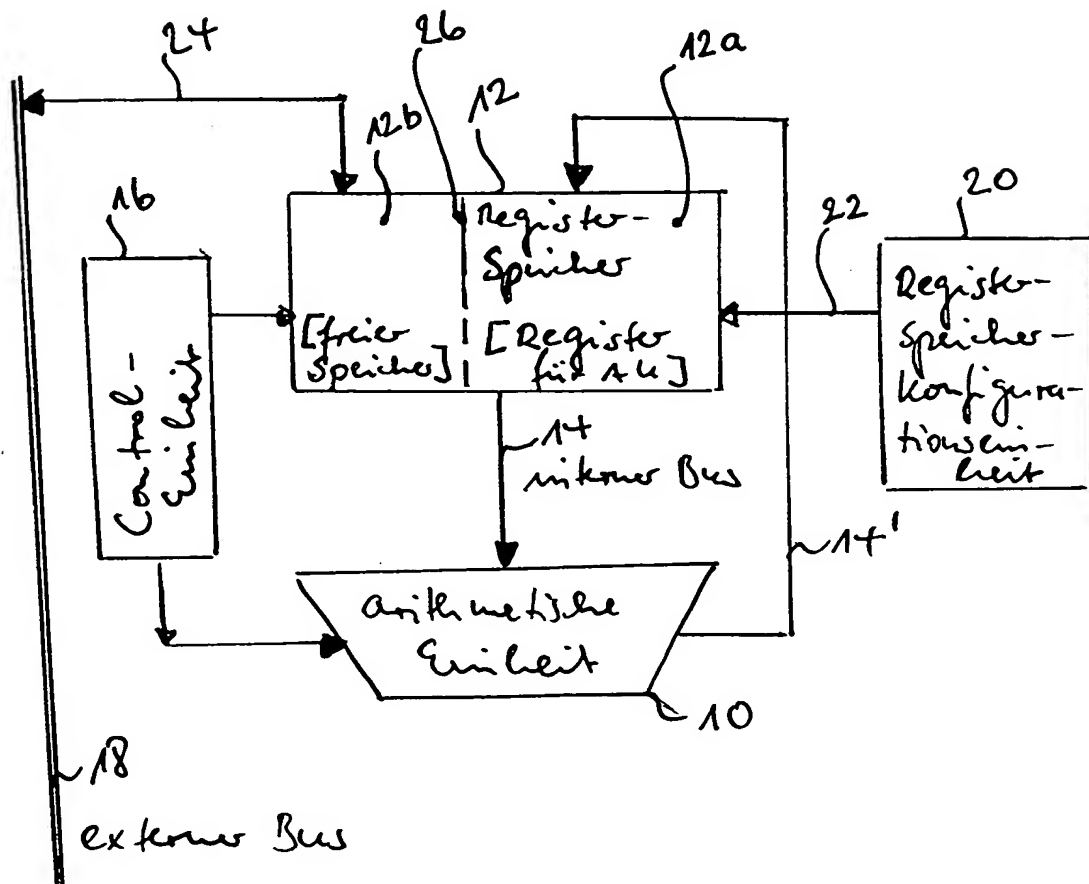 24
26
12a
12
12b
16
20
22
Register-
Speicher
[freier
Speicher]
[Register
für AU]
Register-
Speicher-
Konfigura-
tionsein-
heit
Control-
Einheit
14
interner Bus
14'
arithmetische
Einheit
10
18
externer Bus